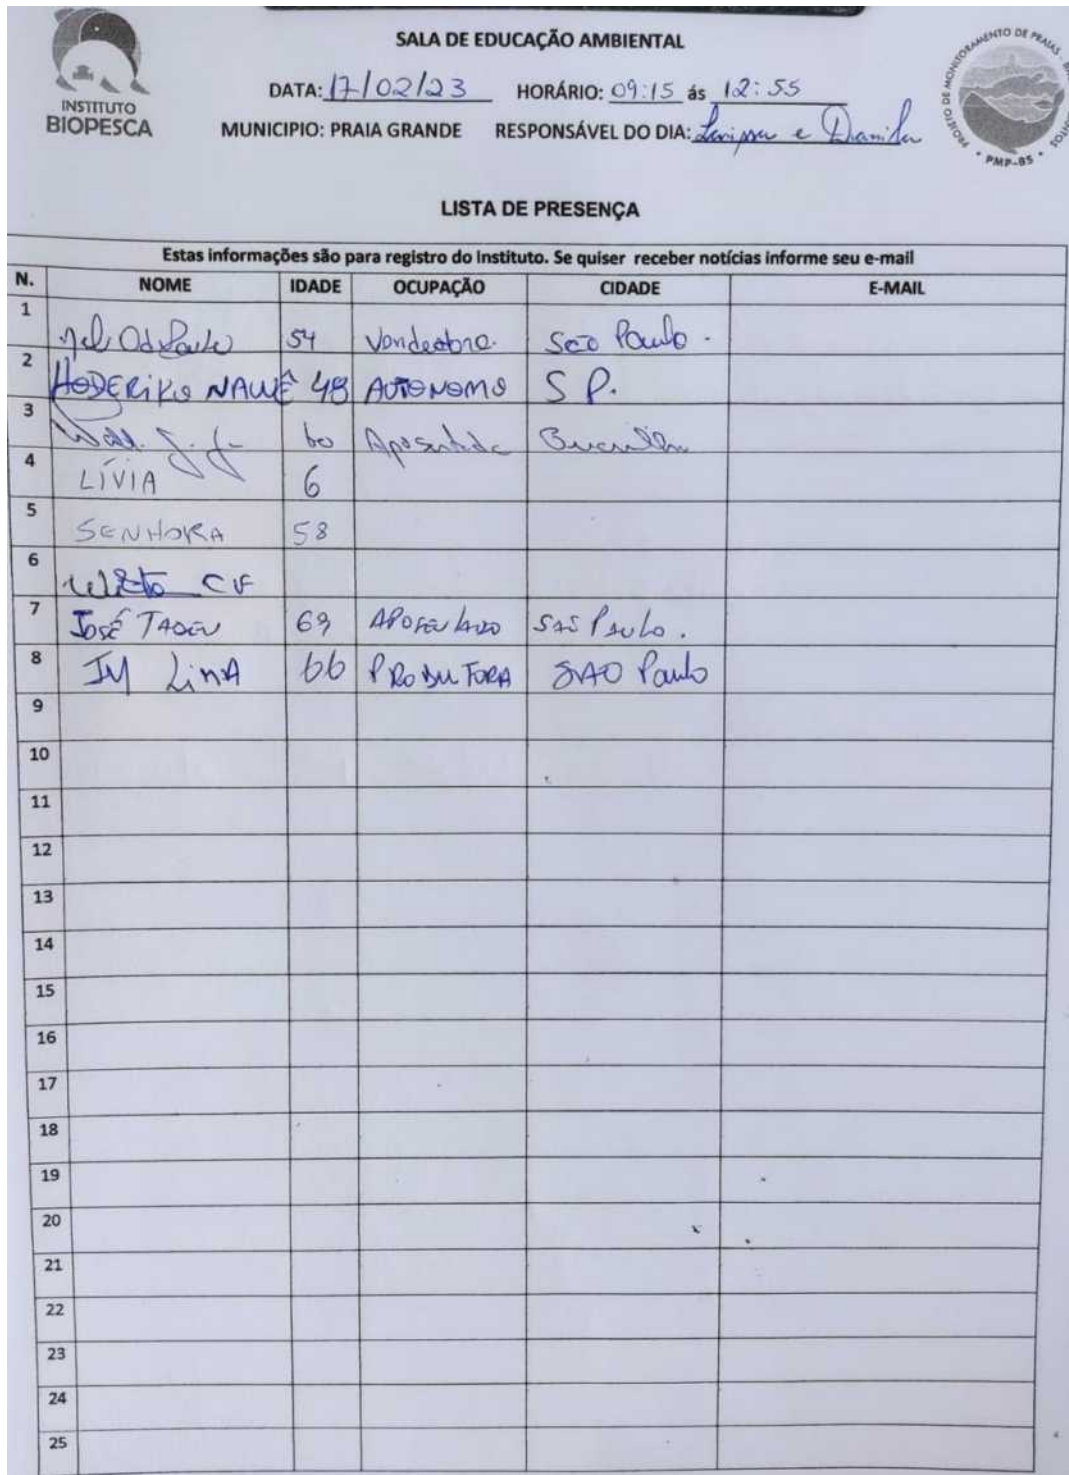 INSTITUTO
BIOPESCA
SALA DE EDUCAÇÃO AMBIENTAL
DATA: 17/02/23 HORÁRIO: 09:15 ás 12:55
MUNICIPIO: PRAIA GRANDE RESPONSÁVEL DO DIA: Larissa e
PROJETO DE MONITORAMENTO DE PRAIAS
PMP-BS
LISTA DE PRESENÇA
Estas informações são para registro do instituto. Se quiser receber notícias informe seu e-mail
N. NOME IDADE OCUPAÇÃO CIDADE E-MAIL
1 54 São Paulo.
2 HODERIKO NAWÊ 48 AUTONOMO S P.
3 60 Aposentado
4 LÍVIA 6
5 SENHORA 58
6
7 JOSÉ TADEU 69 SAO PAULO.
8 LIMA 66 PRODUTORA SAO Paulo
9
10
11
12
13
14
15
16
17
18
19
20
21
22
23
24
25